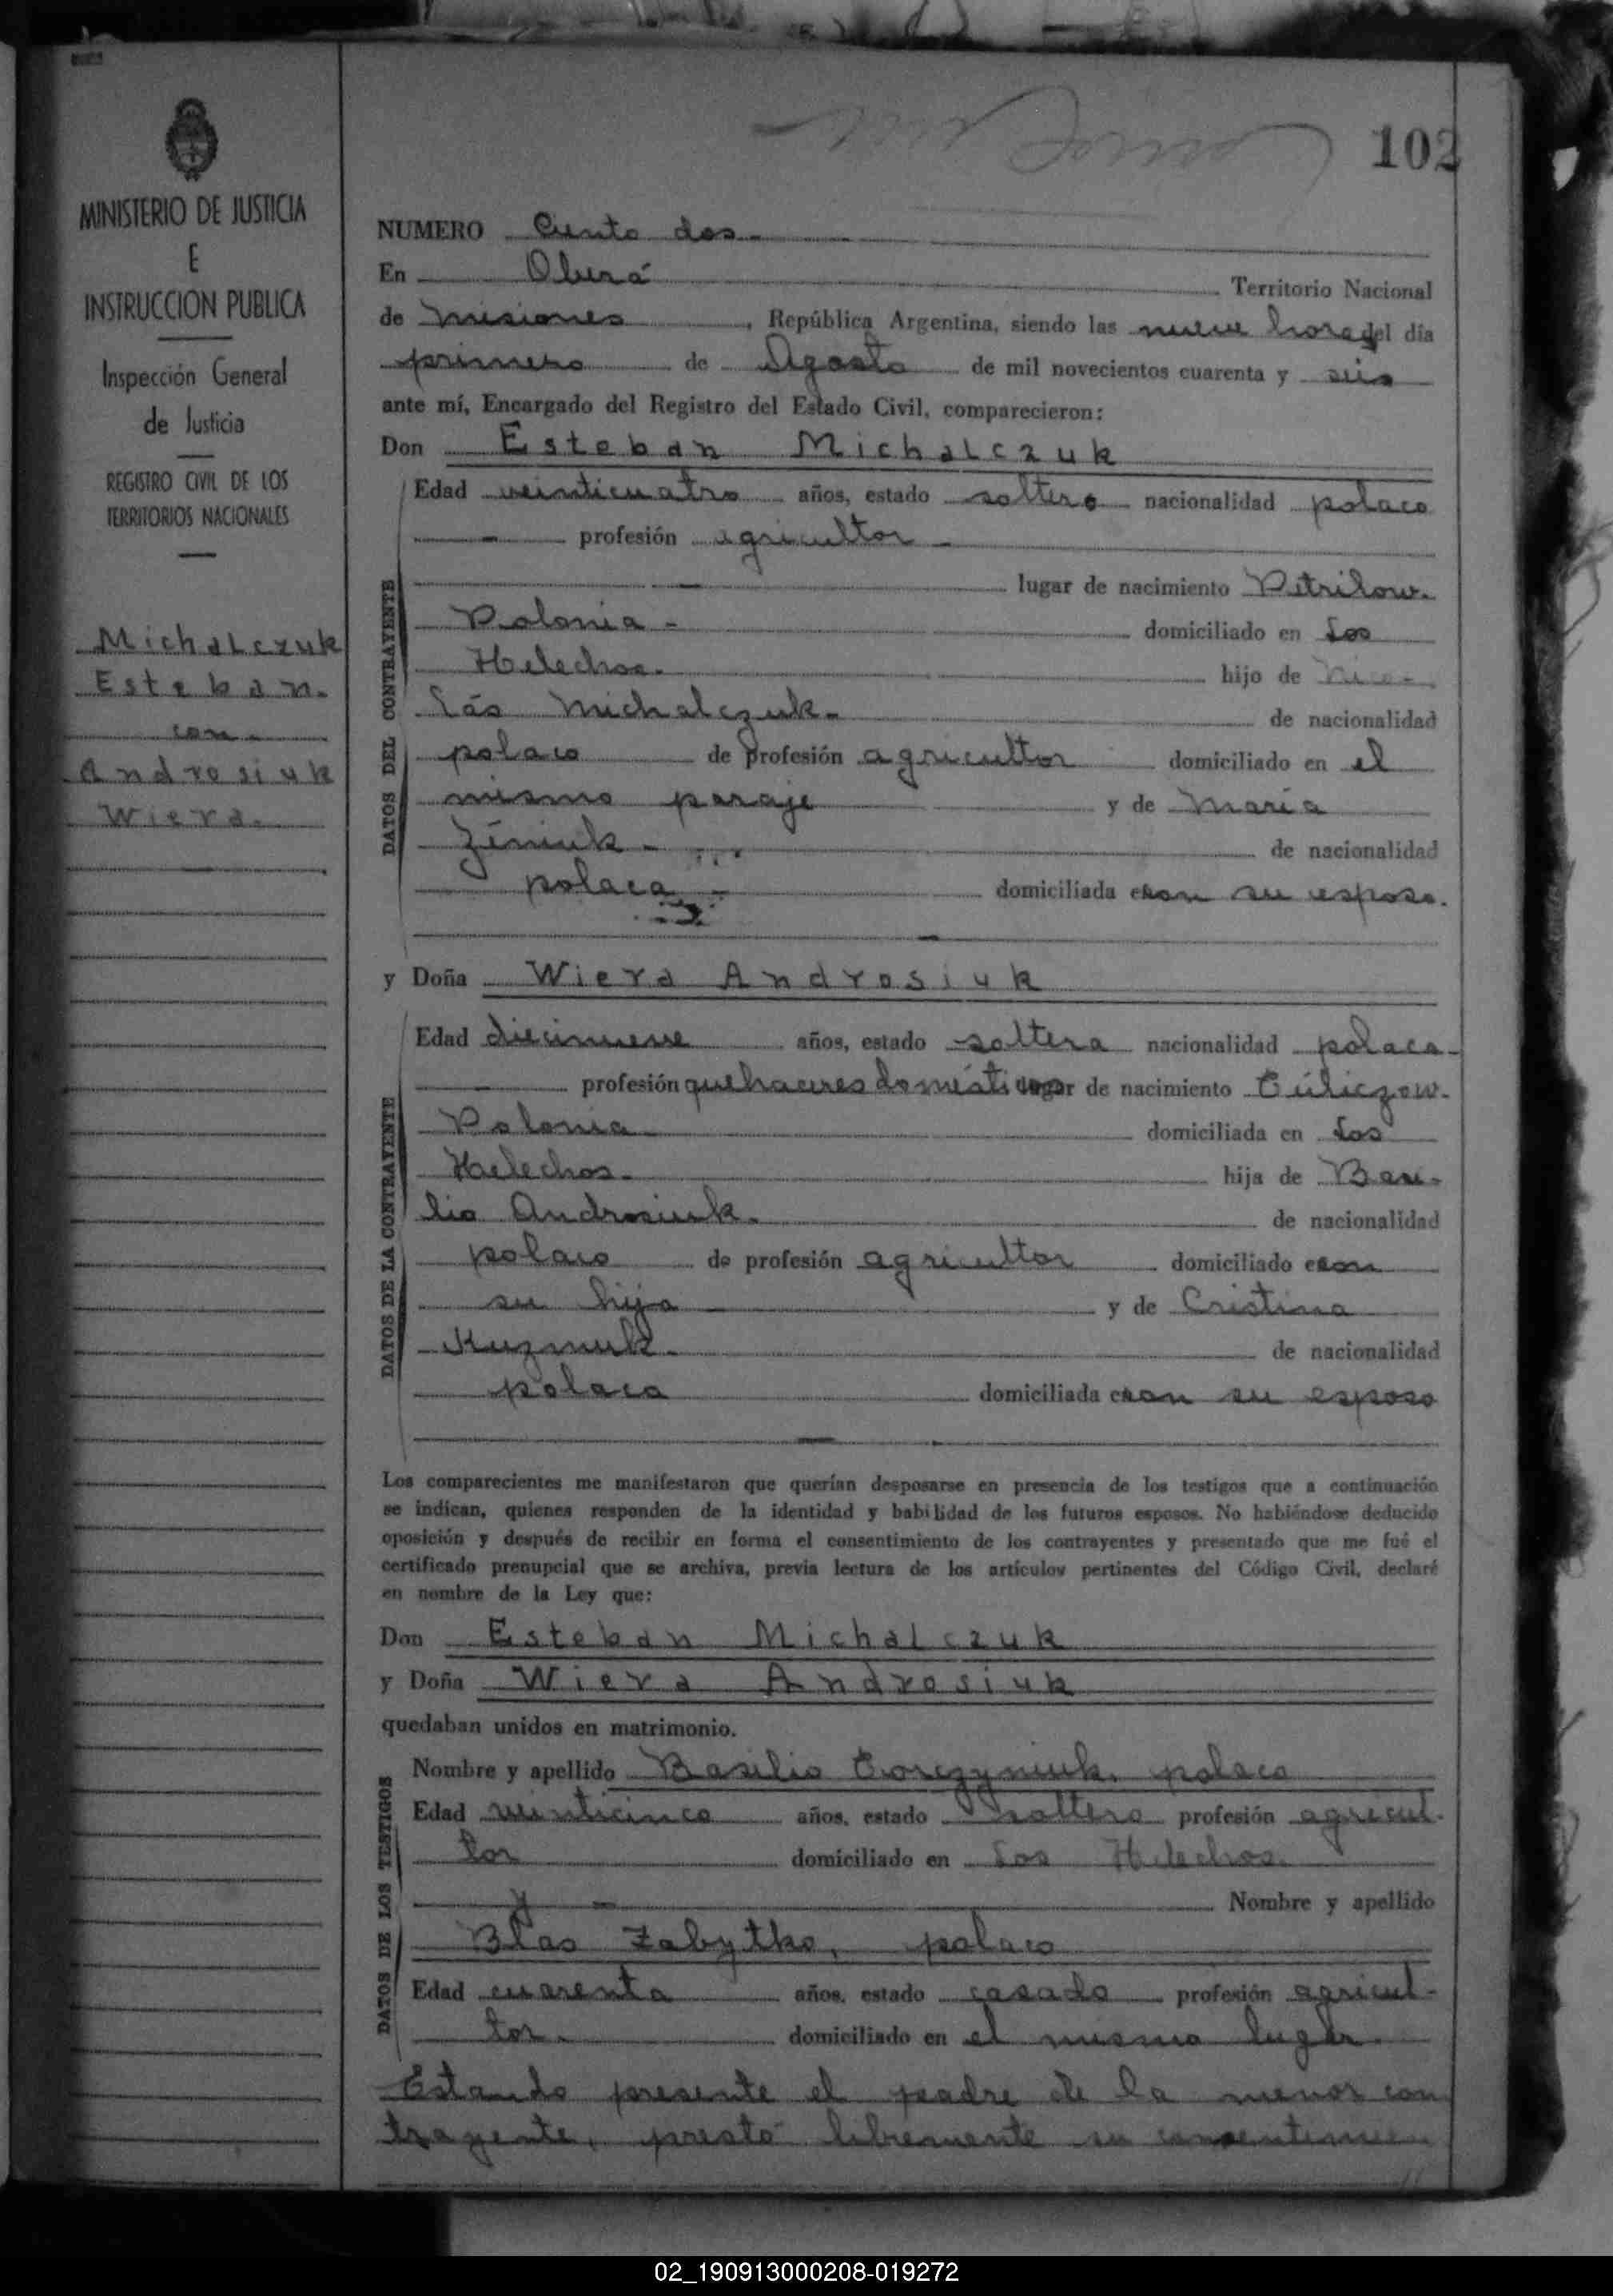 102
MINISTERIO DE JUSTICIA
E
INSTRUCCION PUBLICA
Inspección General
de Justicia
REGISTRO CIVIL DE LOS
TERRITORIOS NACIONALES
Michalczuk
Esteban.
con
Androsiuk
Wiera.
NUMERO Ciento dos.
En Oberá Territorio Nacional
de Misiones, República Argentina, siendo las nueve horas del día
primero de Agosto de mil novecientos cuarenta y seis
ante mí, Encargado del Registro del Estado Civil, comparecieron:
Don Esteban Michalczuk
DATOS DEL CONTRAYENTE
Edad veinticuatro años, estado soltero nacionalidad polaco
profesión agricultor
lugar de nacimiento Petrilow.
Polonia - domiciliado en Los
Helechos. hijo de Nico-
lás Michalczuk. de nacionalidad
polaco de profesión agricultor domiciliado en el
mismo paraje y de María
de nacionalidad
polaca - domiciliada con su esposo.
y Doña Wiera Androsiuk
DATOS DE LA CONTRAYENTE
Edad diecinueve años, estado soltera nacionalidad polaca
profesión quehaceres domésticos lugar de nacimiento
Polonia domiciliada en Los
Helechos. hija de Basi-
lio Androsiuk. de nacionalidad
polaco de profesión agricultor domiciliado con
su hija y de Cristina
de nacionalidad
polaca domiciliada con su esposo
Los comparecientes me manifestaron que querían desposarse en presencia de los testigos que a continuación
se indican, quienes responden de la identidad y habilidad de los futuros esposos. No habiéndose deducido
oposición y después de recibir en forma el consentimiento de los contrayentes y presentado que me fué el
certificado prenupcial que se archiva, previa lectura de los artículos pertinentes del Código Civil, declaré
en nombre de la Ley que:
Don Esteban Michalczuk
y Doña Wiera Androsiuk
quedaban unidos en matrimonio.
DATOS DE LOS TESTIGOS
Nombre y apellido Basilio polaco
Edad veinticinco años, estado soltero profesión agricul-
tor domiciliado en Los Helechos.
y - Nombre y apellido
Blas Zabytko, polaco
Edad cuarenta años, estado casado profesión agricul-
tor. domiciliado en el mismo lugar.
Estando presente el padre de la menor con
trayente, prestó libremente su consentimien
02_190913000208-019272